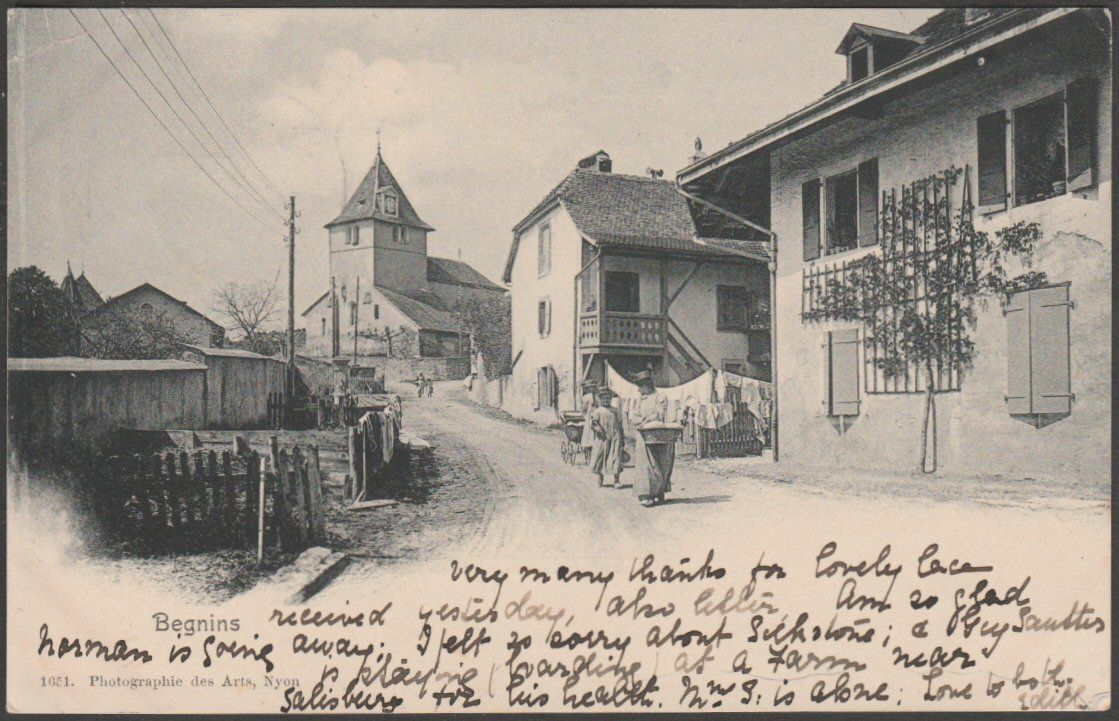 very many thanks for lovely lace
Begnins received yesterday, also letter, Am so glad
Norman is going away; I felt so sorry about Silkstone; Guy Sautter
is staying (boarding) at a Farm near
1651. Photographie des Arts, Nyon
Salisbury for his health. Mrs S. is alone. Love to both.
Edith